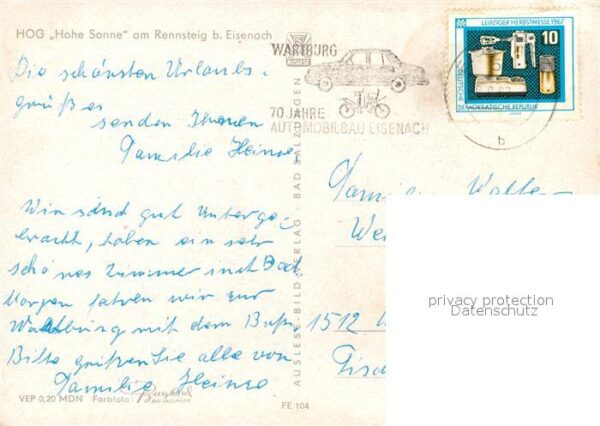 HOG „Hohe Sonne" am Rennsteig b. Eisenach
Die schönsten Urlaubs-
grüße
senden Ihnen
Familie Heinse
Wir sind gut unterge-
bracht, haben ein sehr
schönes Zimmer mit Bad
Morgen fahren wir zur
Wartburg mit dem Bus.
Bitte grüßen Sie alle von
Familie Heinse
VEP 0,20 MDN Farbfoto Burghard
BAD SALZUNGEN
FE 104
AUSLESE-BILD-VERLAG BAD SALZUNGEN
WARTBURG
70 JAHRE
AUTOMOBILBAU EISENACH
LEIPZIGER HERBSTMESSE 1967
10
DEUTSCHE
DEMOKRATISCHE REPUBLIK
b
Familie Walte
1512
privacy protection
Datenschutz